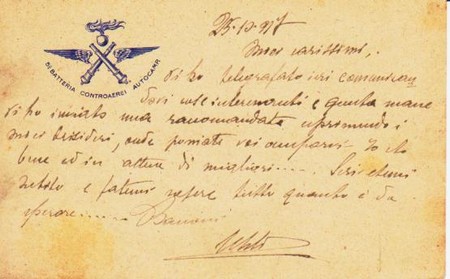 51 BATTERIA CONTROAEREI AUTOCARR
25.10.917
Miei carissimi,
Vi ho telegrafato ieri comunican
dovi intermenti e questa mane
vi ho inviato una racomandata esprimendo i
miei desideri, onde possiate voi occuparvi. Io sto
bene ed in attesa di migliori..... Scrivetemi
subito e fatemi sapere tutto quanto è da
sperare..... Bacioni